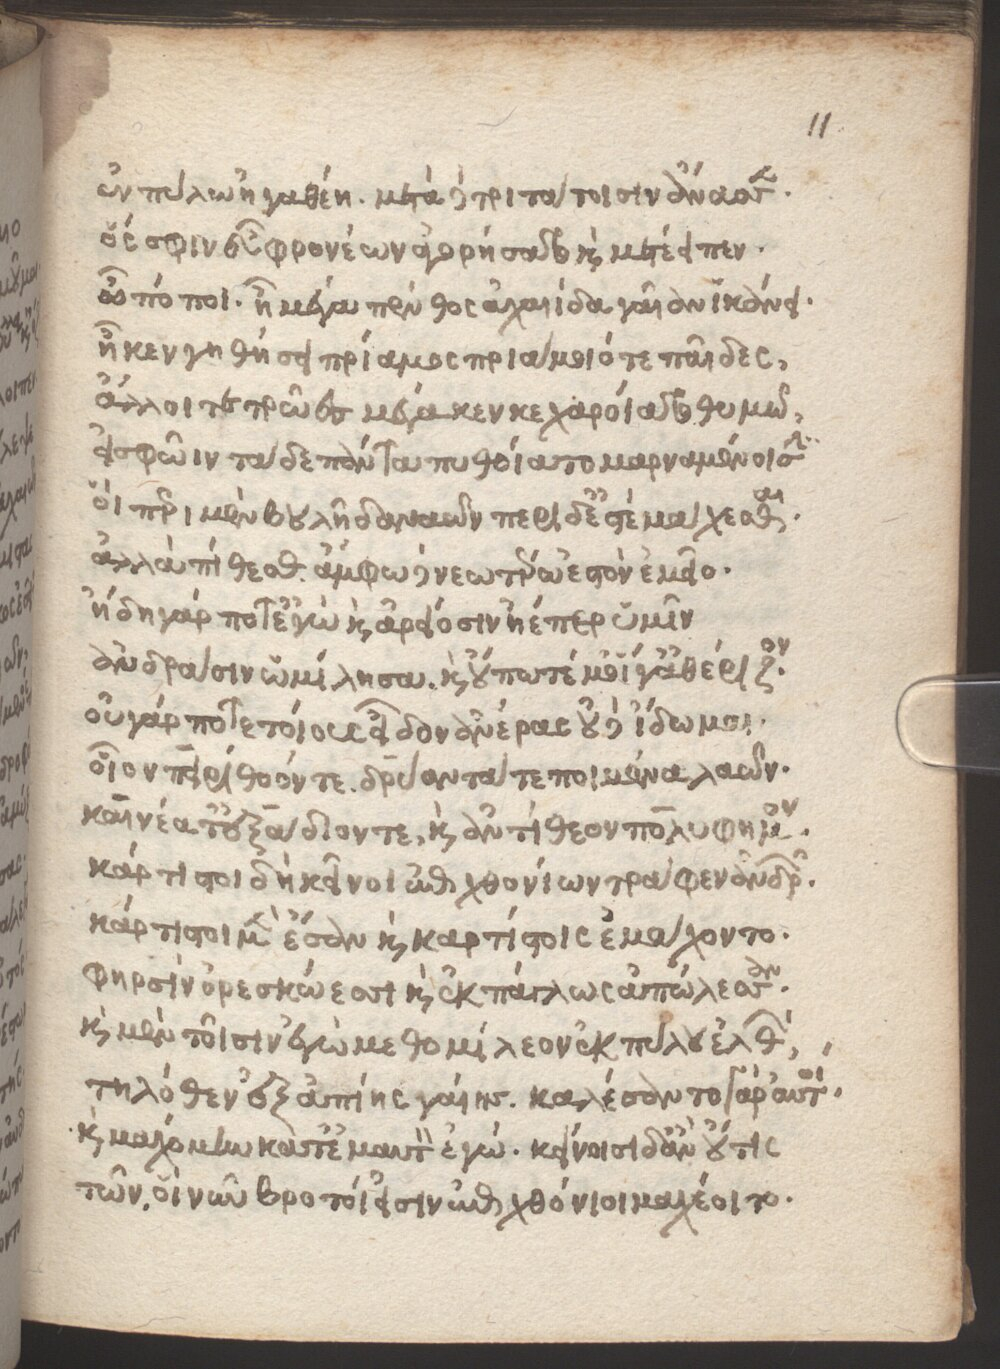 11
ἐν πύλω ἠγαθέη. μετὰ δὲ τριτάτοισιν ἄνασσεν.
ὅς σφιν ἐϋφρονέων ἀγορήσατο καὶ μετέειπεν.
ὢ πόποι. ἦ μέγα πένθος ἀχαιίδα γαῖαν ἱκάνει.
ἦ κεν γηθήσαι πρίαμος πριάμοιό τε παῖδες,
ἄλλοι τε τρῶες μέγα κεν κεχαροίατο θυμῶ,
εἰ σφῶιν τάδε πάντα πυθοίατο μαρναμένοισιν.
οἳ περὶ μὲν βουλὴ δαναῶν περὶ δ' ἐστὲ μάχεσθαι.
ἀλλὰ πίθεσθ. ἄμφω δὲ νεωτέρω ἐστὸν ἐμεῖο.
ἤδη γάρ ποτ' ἐγὼ καὶ ἀρείοσιν ἠέπερ ὑμῖν
ἀνδράσιν ὡμίλησα. καὶ οὔποτέ μ' οἵγ' ἀθέριζον.
οὐ γάρ πω τοίους εἶδον ἀνέρας οὐδὲ ἴδωμαι.
οἷον πειρίθοόν τε. δρύαντά τε ποιμένα λαῶν.
καινέα τ' ἐξάδιόν τε, καὶ ἀντίθεον πολύφημον.
κάρτιστοι δὴ κεῖνοι ἐπιχθονίων τράφεν ἀνδρῶν.
κάρτιστοι μὲν ἔσαν καὶ καρτίστοις ἐμάχοντο.
φηρσὶν ὀρεσκώεσσι καὶ ἐκπάγλως ἀπώλεσσαν.
καὶ μὲν τοῖσιν ἐγὼ μεθομίλεον ἐκ πύλου ἐλθών,
τηλόθεν ἐξ ἀπίης γαίης. καλέσαντο γὰρ αὐτοί.
καὶ μαχόμην κατ' ἔμ' αὐτὸν ἐγώ. κείνοισι δ' ἂν οὔτις
τῶν, οἳ νῦν βροτοί εἰσιν ἐπιχθόνιοι μαχέοιτο.